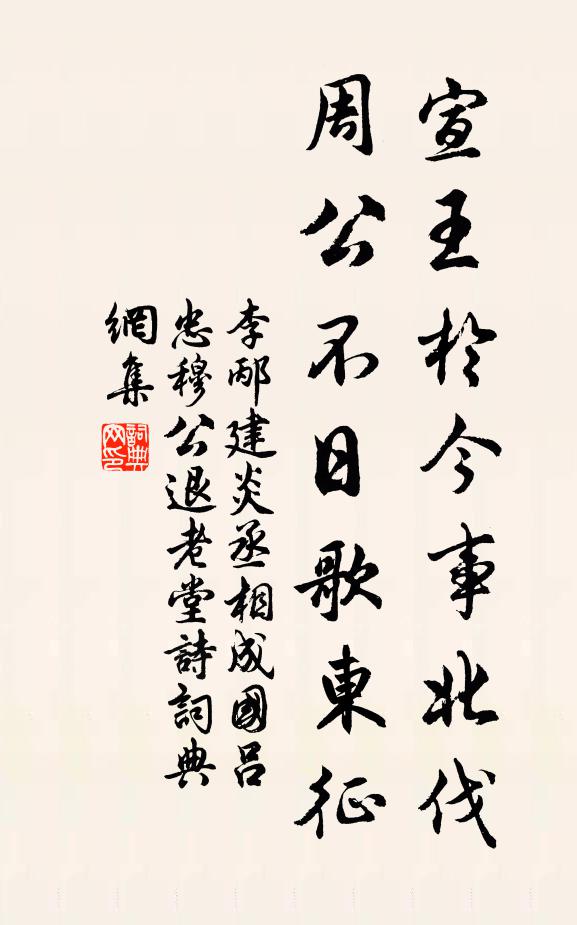 宣王於今事北伐
周公不日歌東征
李邴建炎丞相成國呂
忠穆公退老堂詩詞典
網集
詞典
网印